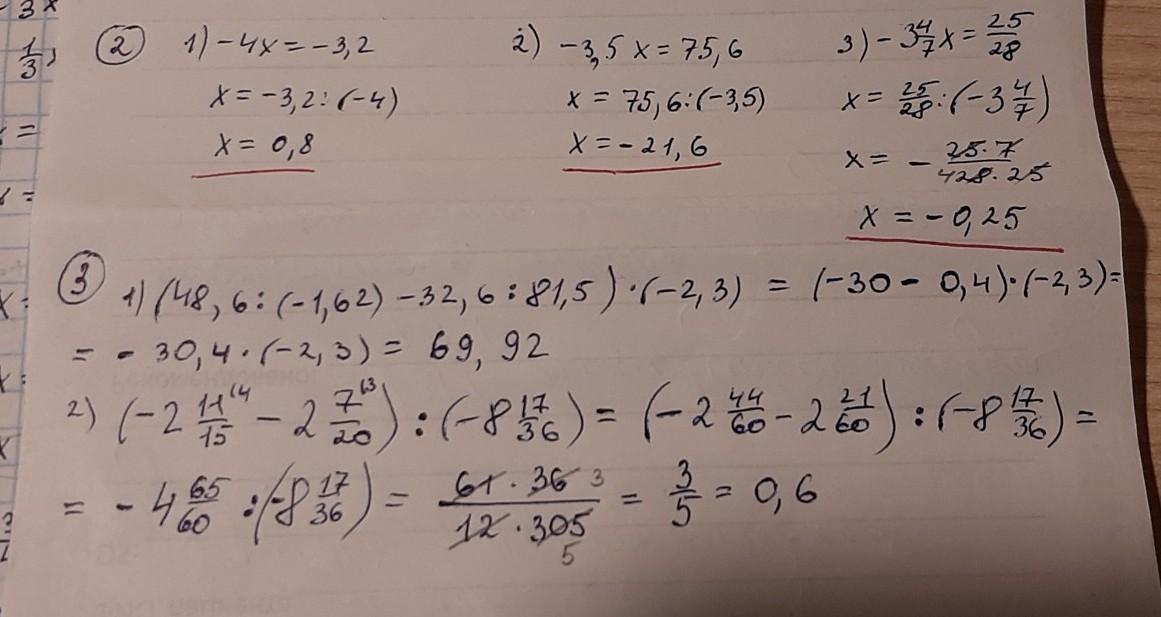 3x
1/3,
② 1) -4x = -3,2
x = -3,2 : (-4)
x = 0,8
2) -3,5 x = 75,6
x = 75,6 : (-3,5)
x = -21,6
3) -3 4/7 x = 25/28
x = 25/28 : (-3 4/7)
x = - 25·7/4 28·25
x = -0,25
③ 1) (48,6 : (-1,62) - 32,6 : 81,5) · (-2,3) = (-30 - 0,4) · (-2,3) =
= - 30,4 · (-2,3) = 69,92
2) (-2 11/15 (4 - 2 7/20 (3) : (-8 17/36) = (-2 44/60 - 2 21/60) : (-8 17/36) =
= - 4 65/60 : (-8 17/36) = 61·36 3/12·305 5 = 3/5 = 0,6